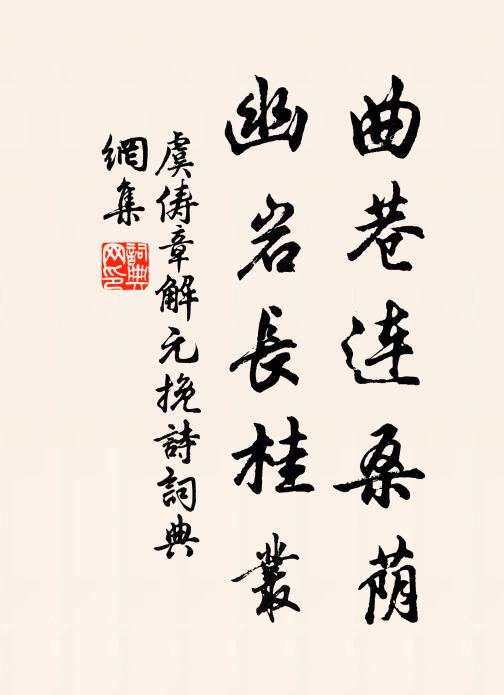 曲巷连桑荫
幽岩長桂叢
虞俦章解元挽詩詞典
網集
詞典网印